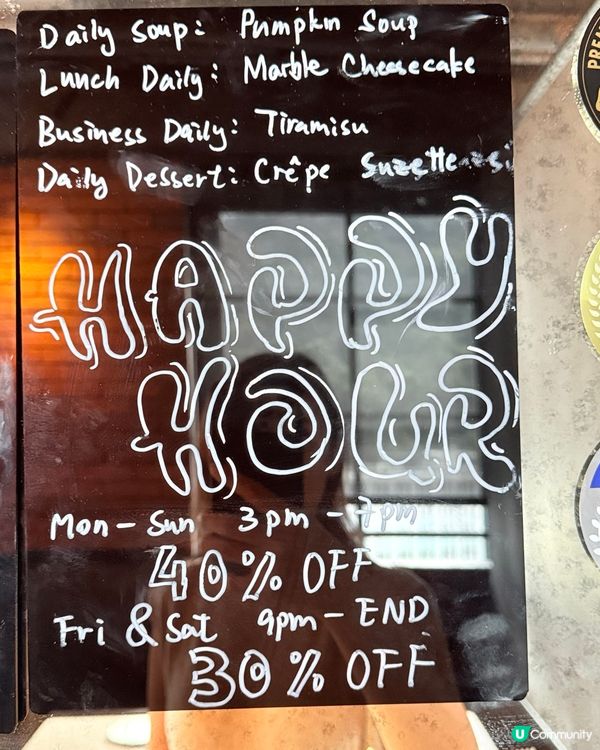 Daily Soup: Pumpkin Soup
Lunch Daily: Marble Cheesecake
Business Daily: Tiramisu
Daily Dessert: Crêpe Suzette
HAPPY
HOUR
Mon - Sun 3pm - 7pm
40% OFF
Fri & Sat 9pm - END
30% OFF
PRE
U Community